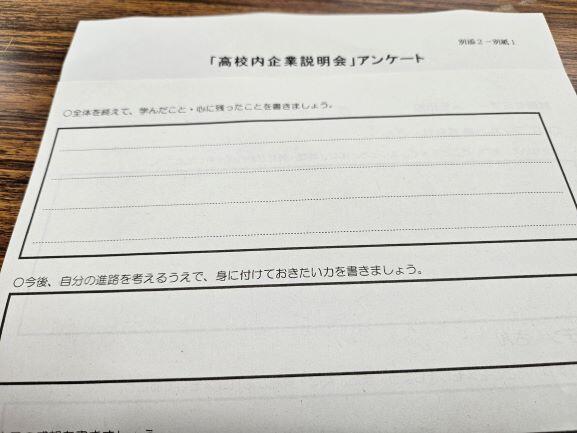 別添2－別紙1
「高校内企業説明会」アンケート
○全体を終えて、学んだこと・心に残ったことを書きましょう。
○今後、自分の進路を考えるうえで、身に付けておきたい力を書きましょう。